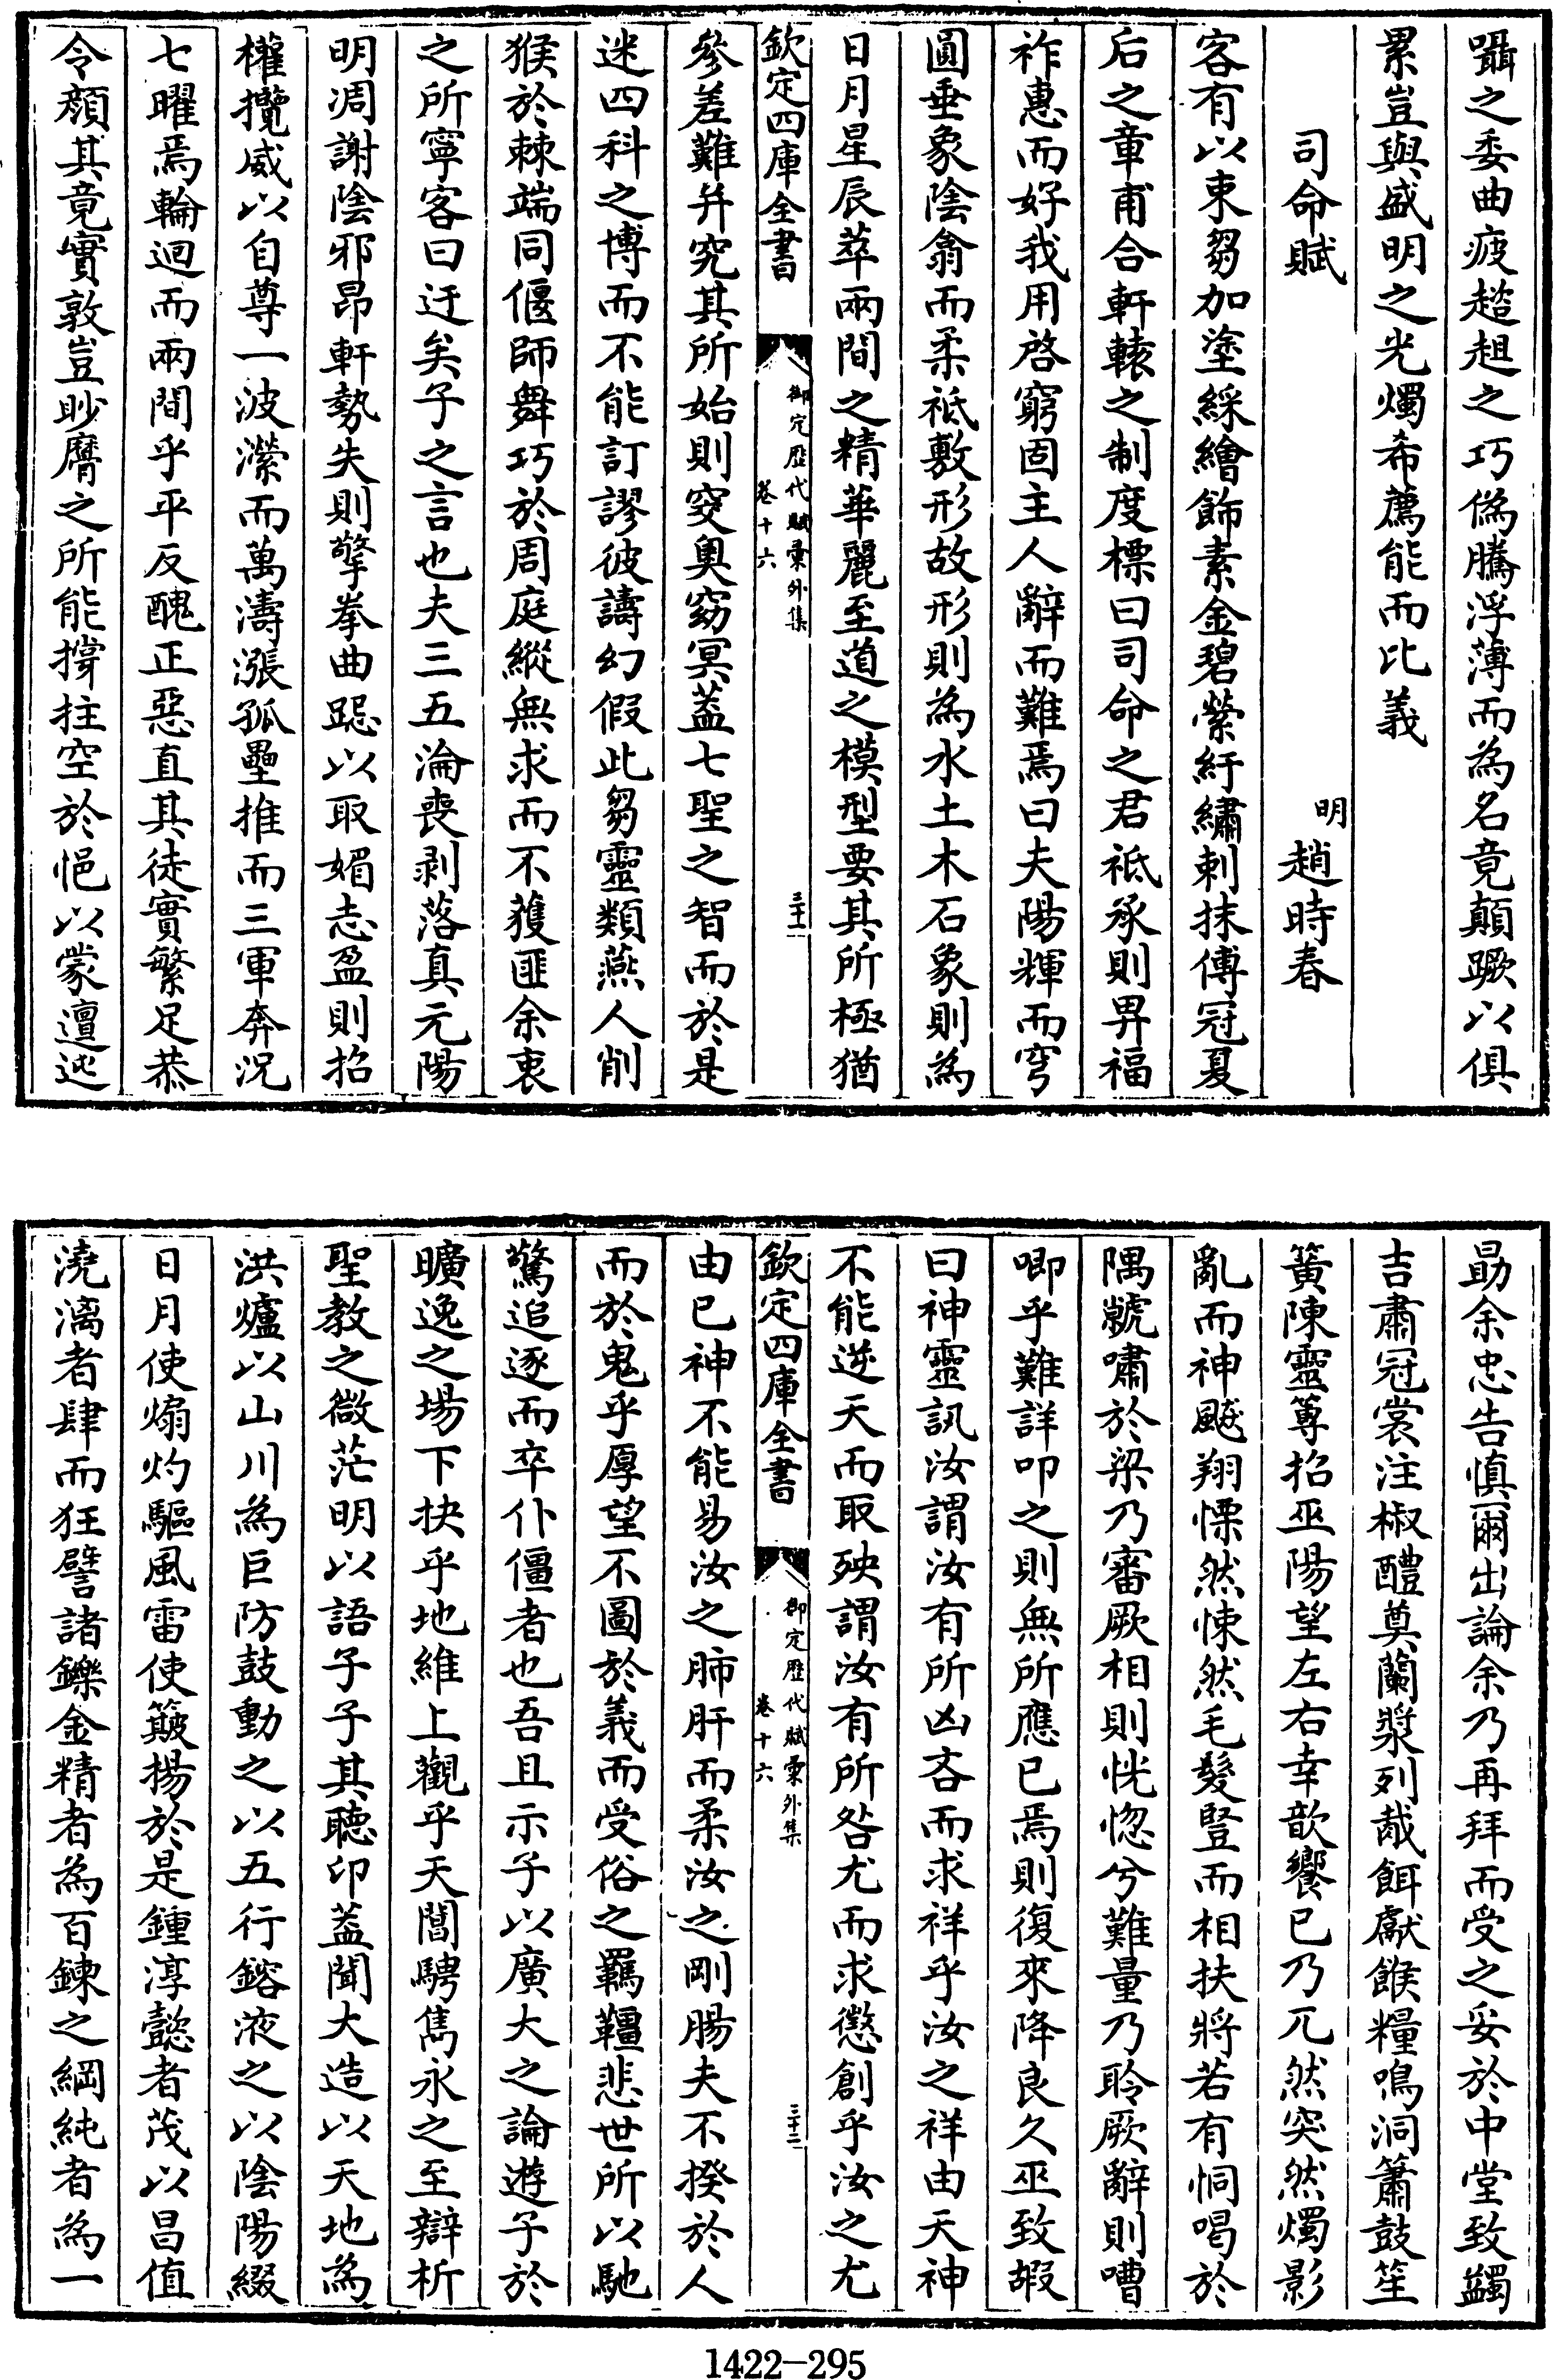 囁之委曲疲趦趄之巧偽騰浮薄而為名竟顛蹶以俱
累豈與盛明之光燭希薦能而比義
司命賦
明趙時春
客有以束芻加塗綵繪飾素金碧縈紆繡刺抹傅冠夏
后之章甫合軒轅之制度標曰司命之君祗承則畀福
祚惠而好我用啓窮固主人辭而難焉曰夫陽輝而穹
圓垂象陰翕而柔祗敷形故形則為水土木石象則為
日月星辰萃兩間之精華麗至道之模型要其所極猶
欽定四庫全書
御定歷代賦彙外集
卷十六
三十一
參差難并究其所始則窔奧窈冥蓋七聖之智而於是
迷四科之博而不能訂謬彼譸幻假此芻靈類燕人削
猴於棘端同偃師舞巧於周庭縱無求而不獲匪余衷
之所寧客曰迂矣子之言也夫三五淪喪剥落真元陽
明凋謝陰邪昂軒勢失則擎拳曲跽以取媚志盈則招
權攬威以自尊一波濴而萬濤漲孤壘推而三軍奔況
七曜焉輪迴而兩間乎平反醜正惡直其徒實繁足恭
令顏其竟實敦豈眇膺之所能撐拄空於悒以蒙邅迍
勗余忠告慎爾出論余乃再拜而受之妥於中堂致蠲
吉肅冠裳注椒醴奠蘭漿列胾餌獻餱糧鳴洞簫鼓笙
簧陳靈篿招巫陽望左右幸歆饗已乃兀然突然燭影
亂而神颷翔慄然悚然毛髮豎而相扶將若有恫喝於
隅虩嘯於梁乃審厥相則恍惚兮難量乃聆厥辭則嘈
唧乎難詳叩之則無所應已焉則復來降良久巫致嘏
曰神靈訊汝謂汝有所凶吝而求祥乎汝之祥由天神
不能逆天而取殃謂汝有所咎尤而求懲創乎汝之尤
欽定四庫全書
御定歷代賦彙外集
卷十六
三十二
由已神不能易汝之肺肝而柔汝之剛腸夫不揆於人
而於鬼乎厚望不圖於義而受俗之羈韁悲世所以馳
驚追逐而卒仆僵者也吾且示子以廣大之論遊子於
曠逸之場下抉乎地維上觀乎天閶騁雋永之至辯析
聖教之微茫明以語子子其聽卬蓋聞大造以天地為
洪爐以山川為巨防鼓動之以五行鎔液之以陰陽綴
日月使煽灼驅風雷使簸揚於是鍾淳懿者茂以昌值
澆漓者肆而狂譬諸鑠金精者為百鍊之綱純者為一
1422-295